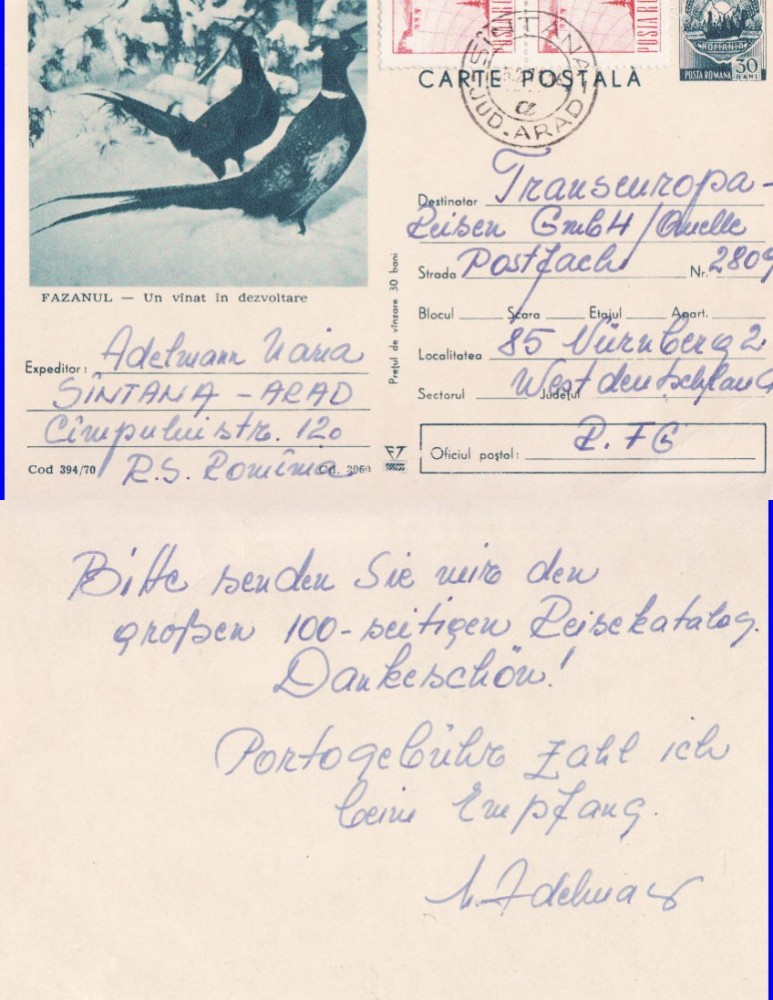 POSTA R
POSTA R
ROMANIA
POSTA ROMANA 30 BANI
CARTE POSTALĂ
SÎNTANA
JUD. ARAD
FAZANUL — Un vînat în dezvoltare
Expeditor: Adelmann Maria
SÎNTANA - ARAD
Cîmpului str. 120
R.S. Romînia
Cod 394/70
Cd. 3960
Prețul de vînzare 30 bani
Destinatar Transeuropa-
Reisen GmbH/Quelle
Strada Postfach Nr. 2809
Blocul Scara Etajul Apart.
Localitatea 85 Nürnberg 2
Sectorul Județul Westdeutschland
R.F.G
Oficiul poștal:
Bitte senden Sie mir den
großen 100-seitigen Reisekatalog.
Dankeschön!
Portogebühr zahl ich
beim Empfang.
M. Adelmann